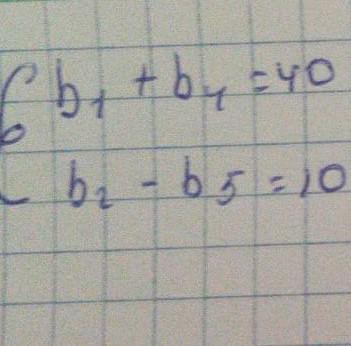 { b₁ + b₄ = 40
b₂ - b5 = 10